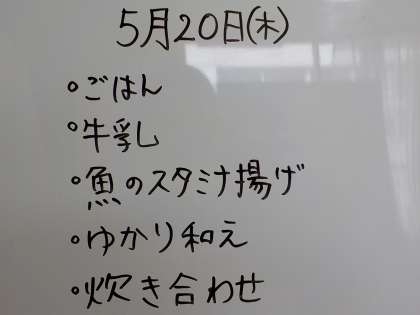 5月20日(木)
・ごはん
・牛乳
・魚のスタミナ揚げ
・ゆかり和え
・炊き合わせ